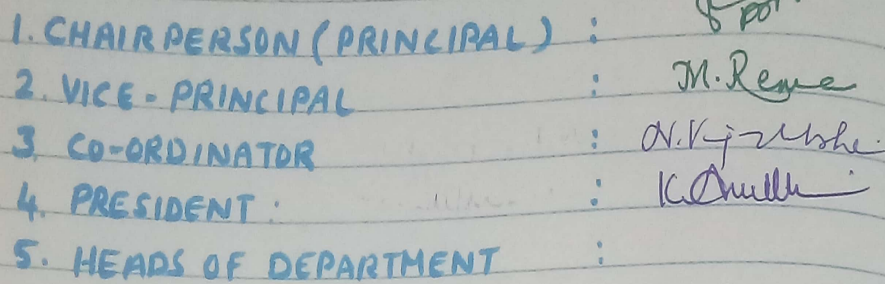 1. CHAIRPERSON (PRINCIPAL) :
2. VICE-PRINCIPAL : M. Rema
3. CO-ORDINATOR :
4. PRESIDENT : :
5. HEADS OF DEPARTMENT :